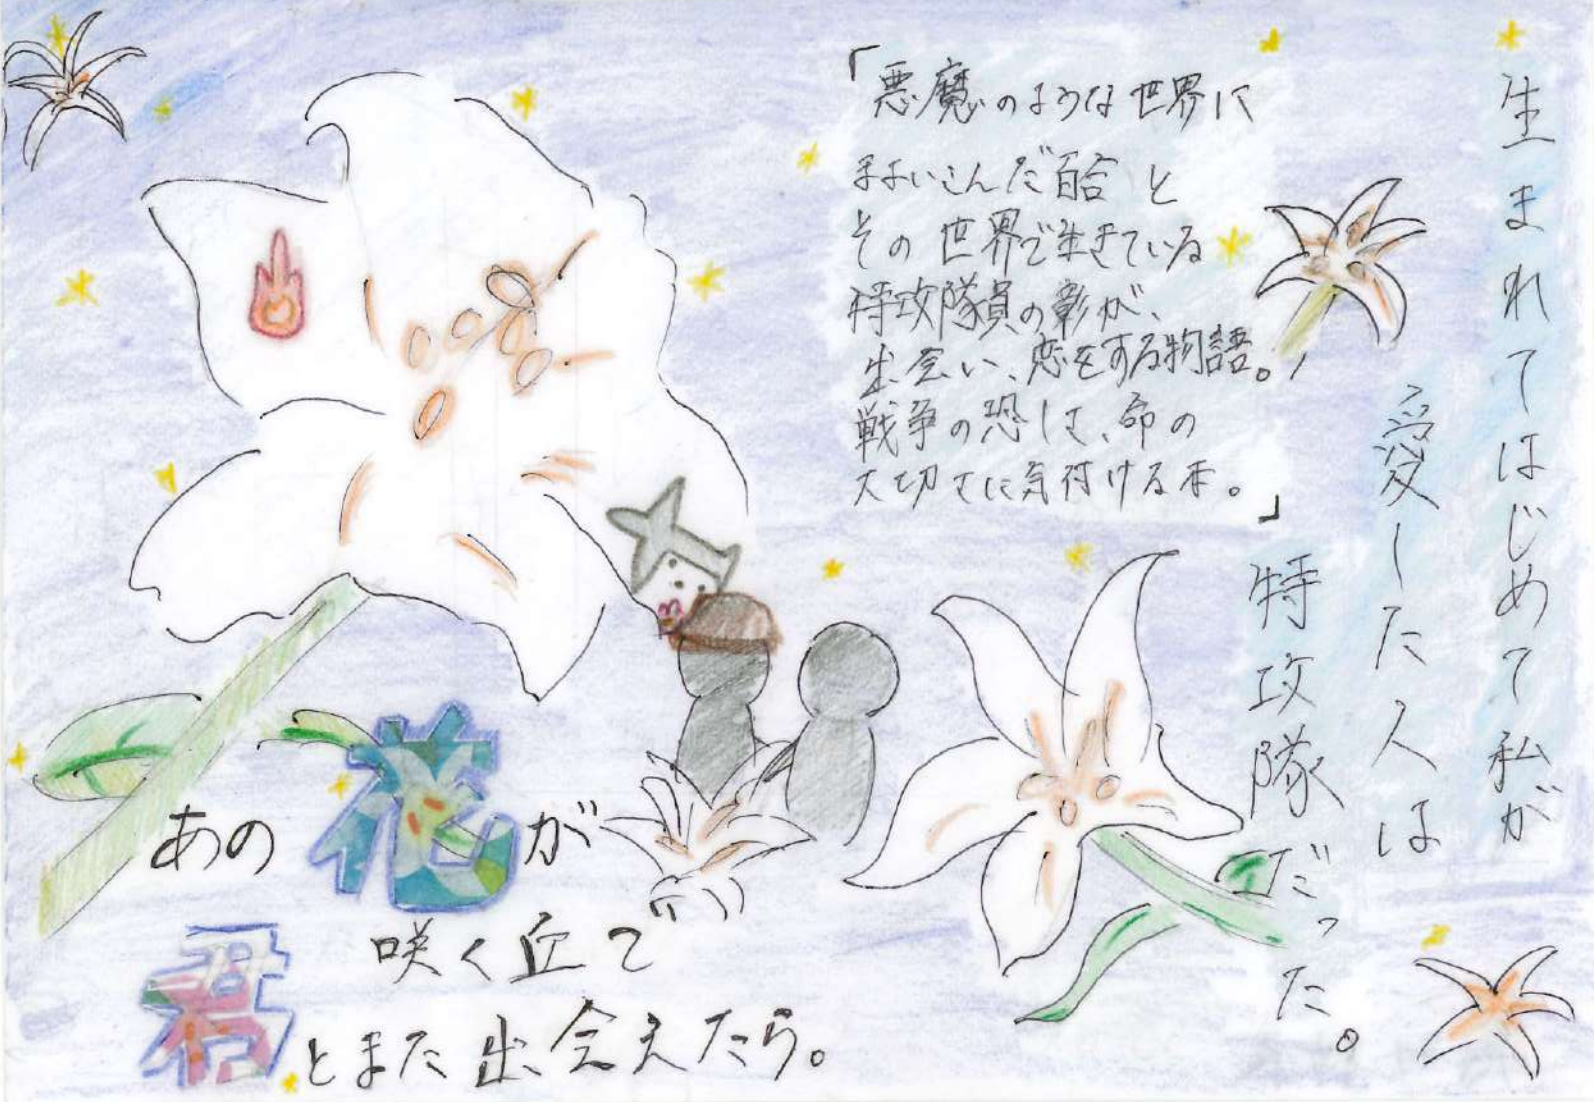 生まれてはじめて私が
愛した人は
特攻隊だった。
「悪魔のような世界に
まよいこんだ百合と
その世界で生きている
特攻隊員の彰が、
出会い、恋をする物語。
戦争の恐しさ、命の
大切さに気付ける本。」
あの花が
咲く丘で
君とまた出会えたら。